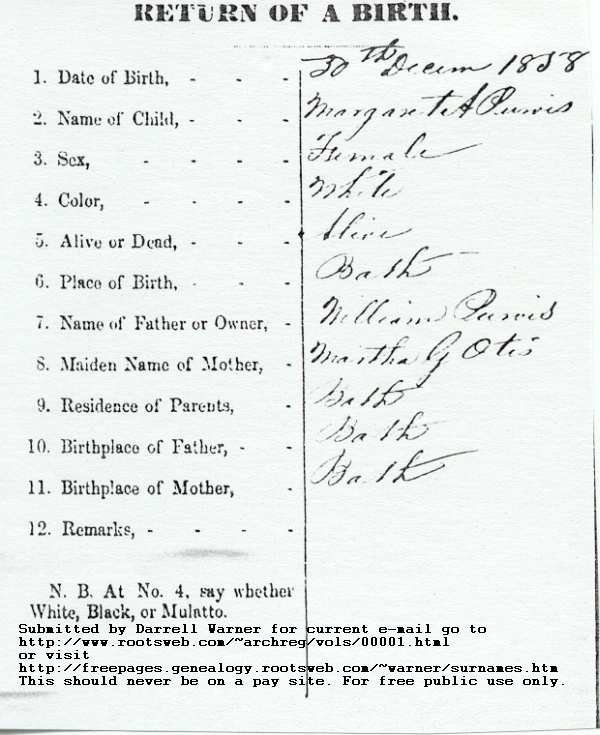 RETURN OF A BIRTH.
1. Date of Birth, - - - 30th Decem 1858
2. Name of Child, - - - Margaret A Purvis
3. Sex, - - - - Female
4. Color, - - - - White
5. Alive or Dead, - - - Alive
6. Place of Birth, - - - Bath
7. Name of Father or Owner, - William Purvis
8. Maiden Name of Mother, - Martha G Otis
9. Residence of Parents, - Bath
10. Birthplace of Father, - - Bath
11. Birthplace of Mother, - Bath
12. Remarks, - - - -
N. B. At No. 4, say whether
White, Black, or Mulatto.
Submitted by Darrell Warner for current e-mail go to
http://www.rootsweb.com/~archreg/vols/00001.html
or visit
http://freepages.genealogy.rootsweb.com/~warner/surnames.htm
This should never be on a pay site. For free public use only.